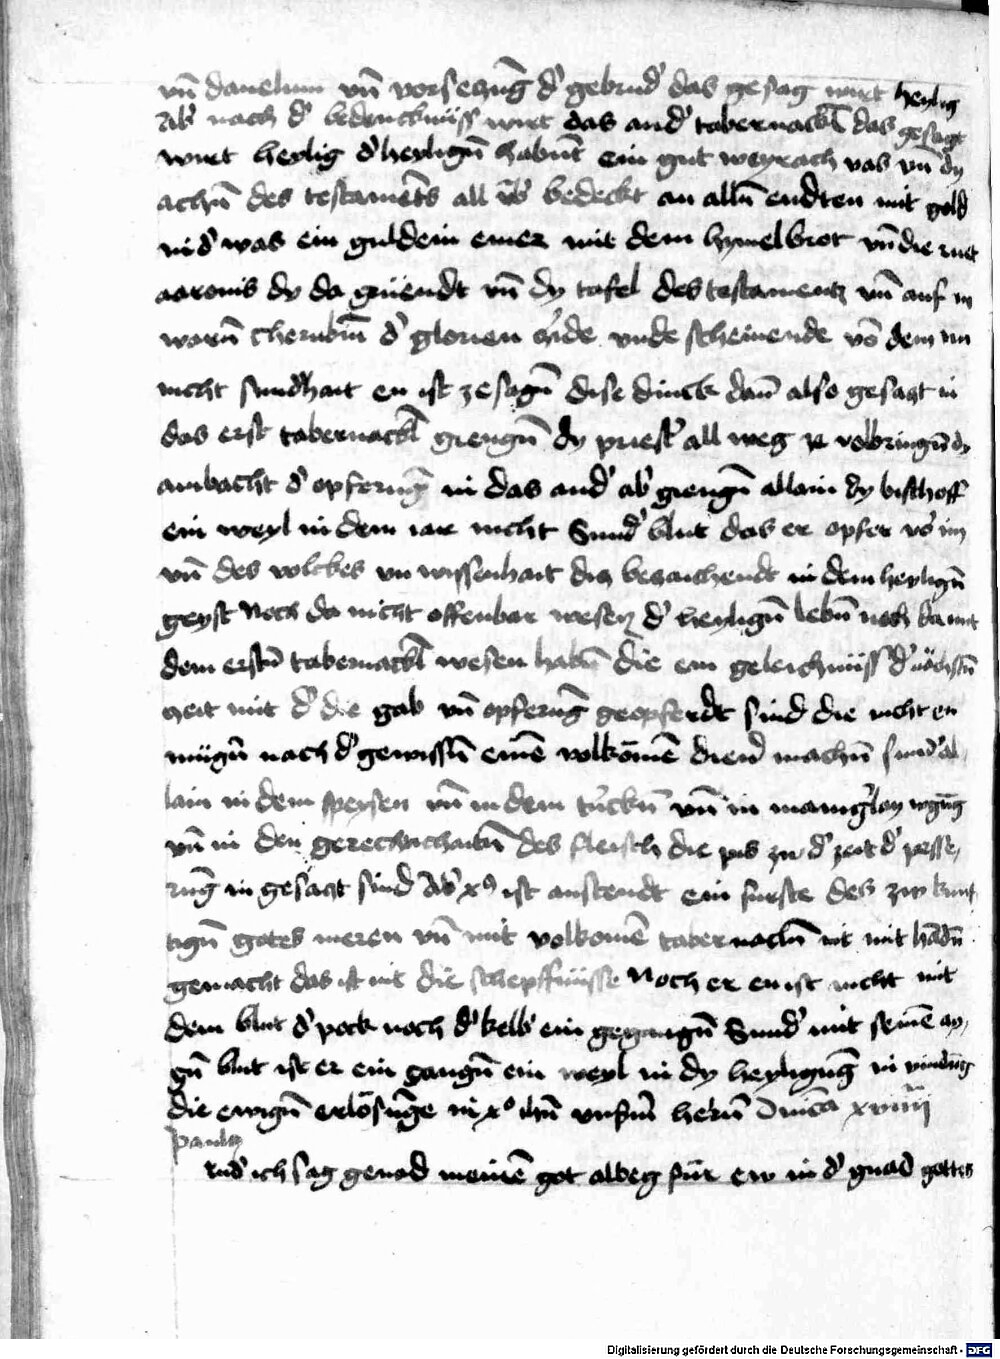 vn̄ dauelum vn̄ vorseczūg d' gebrud' das gesag wirt heylig
Ab' nach d' bedenckniiss wirt das and' tabernackl̄ das gesagt
wirt heylig d' heylign̄ habn̄t ein gut weyrach vas vn̄ dy
archn̄ des testamēts all v̄b' bedeckt an alln̄ endten mit gold
in d' was ein guldein emer mit dem hymelbrot vn̄ die ruet
aaronis dy da grüendt vn̄ dy tafel des testamentz vn̄ auf in
warn̄ Cherubin̄ d' glorien vnde scheinende vō dem
nicht sund'hait en ist ze sagn̄ dise dinck dan̄ also gesagt in
das erst tabernackl̄ giengn̄ dy priest' all weg volbringn̄ dy
ambacht d' opferūg in das and' ab' giengn̄ allain dy bischoff
ein weyl in dem iar nicht Sund' blut das er opfer vō im
vn̄ des volckes vn wissenhait diz bezaichendt in dem heylign̄
geyst Noch da nicht offenbar wesen d' heylign̄ lebn̄ noch da mit
dem erstn̄ tabernackl̄ wesen habn̄ die ein geleichniiss d'
zeit mit d' die gab vn̄ opferūg geopferdt sind die nicht en
mügn̄ nach d' gewissn̄ einē volkomē diend machn̄ sund' al
lain in dem speysen vn̄ in dem trückn̄ vn̄ in manig'lay
vn̄ in den gerechtichaitn̄ des fleisch die pis zu d' zeit d' pesse,
rūg in gesaczt sind Ab' xp̄s ist anstendt ein furste des zw kunf
tign̄ gotes meren vn̄ mit volkomē tabernackn̄ nit mit hādn̄
gemacht das ist nit die schepffniisse Noch er en ist nicht mit
dem blut d' pock noch d' kelb' ein gegangn̄ Sund' mit seinē ay,
gn̄ blut ist er ein gangn̄ ein weyl in dy heyligūg in vindūg
die ewign̄ erlösūge in xp̄o ihū vnsm̄ hern̄ Dn̄ica xviiij
Paulus
Rud' ich sag genad meinē got alweg für ew in d' gnad gottes
Digitalisierung gefördert durch die Deutsche Forschungsgemeinschaft - DFG